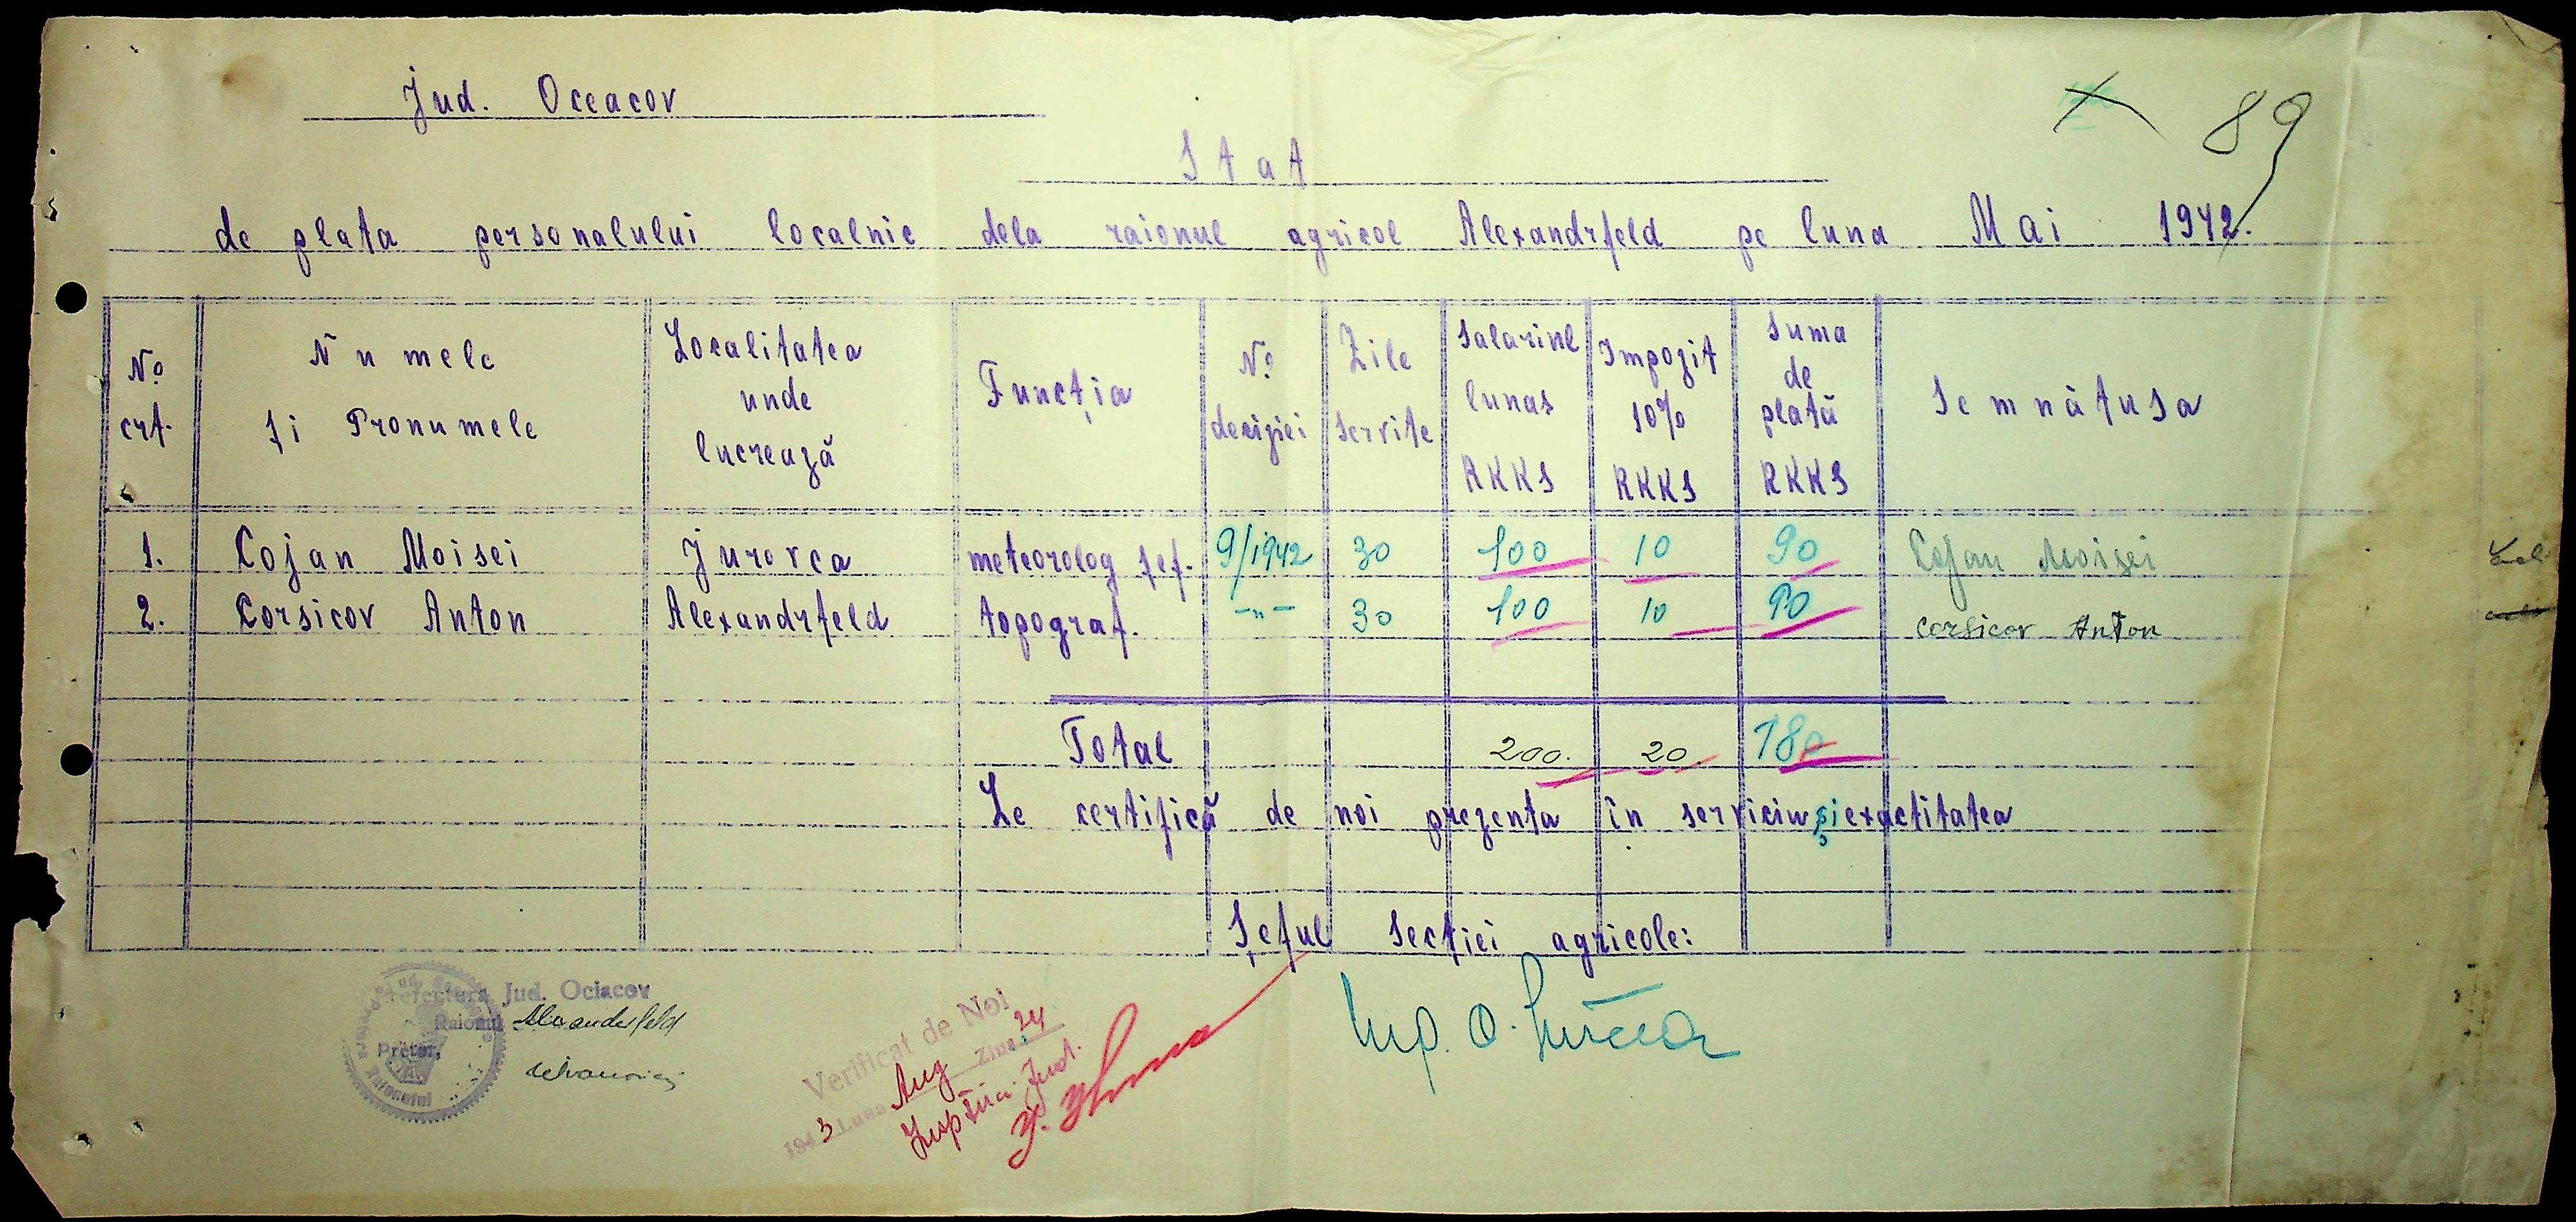 Jud. Oceacov
89
Stat
de plata personalului localnic dela raionul agricol Alexandrfeld pe luna Mai 1942.
No crt. Numele și Pronumele Localitatea unde lucrează Funcția No deciziei Zile servite Salariul lunar RKKS Impozit 10% RKKS Suma de plată RKKS Semnătura
1. Cojan Moisei Jurovca meteorolog șef. 9/1942 30 100 10 90 Cojan Moisei
2. Corsicov Anton Alexandrfeld topograf. -"- 30 100 10 90 Corsicov Anton
Total 200. 20 180
Se certifică de noi prezenta în serviciu și exactitatea
Șeful secției agricole:
Prefectura Jud. Ociacov
Raionul Alexanderfeld
Pretor,
Verificat de Noi
1943 Luna Aug Ziua 24
Jud.